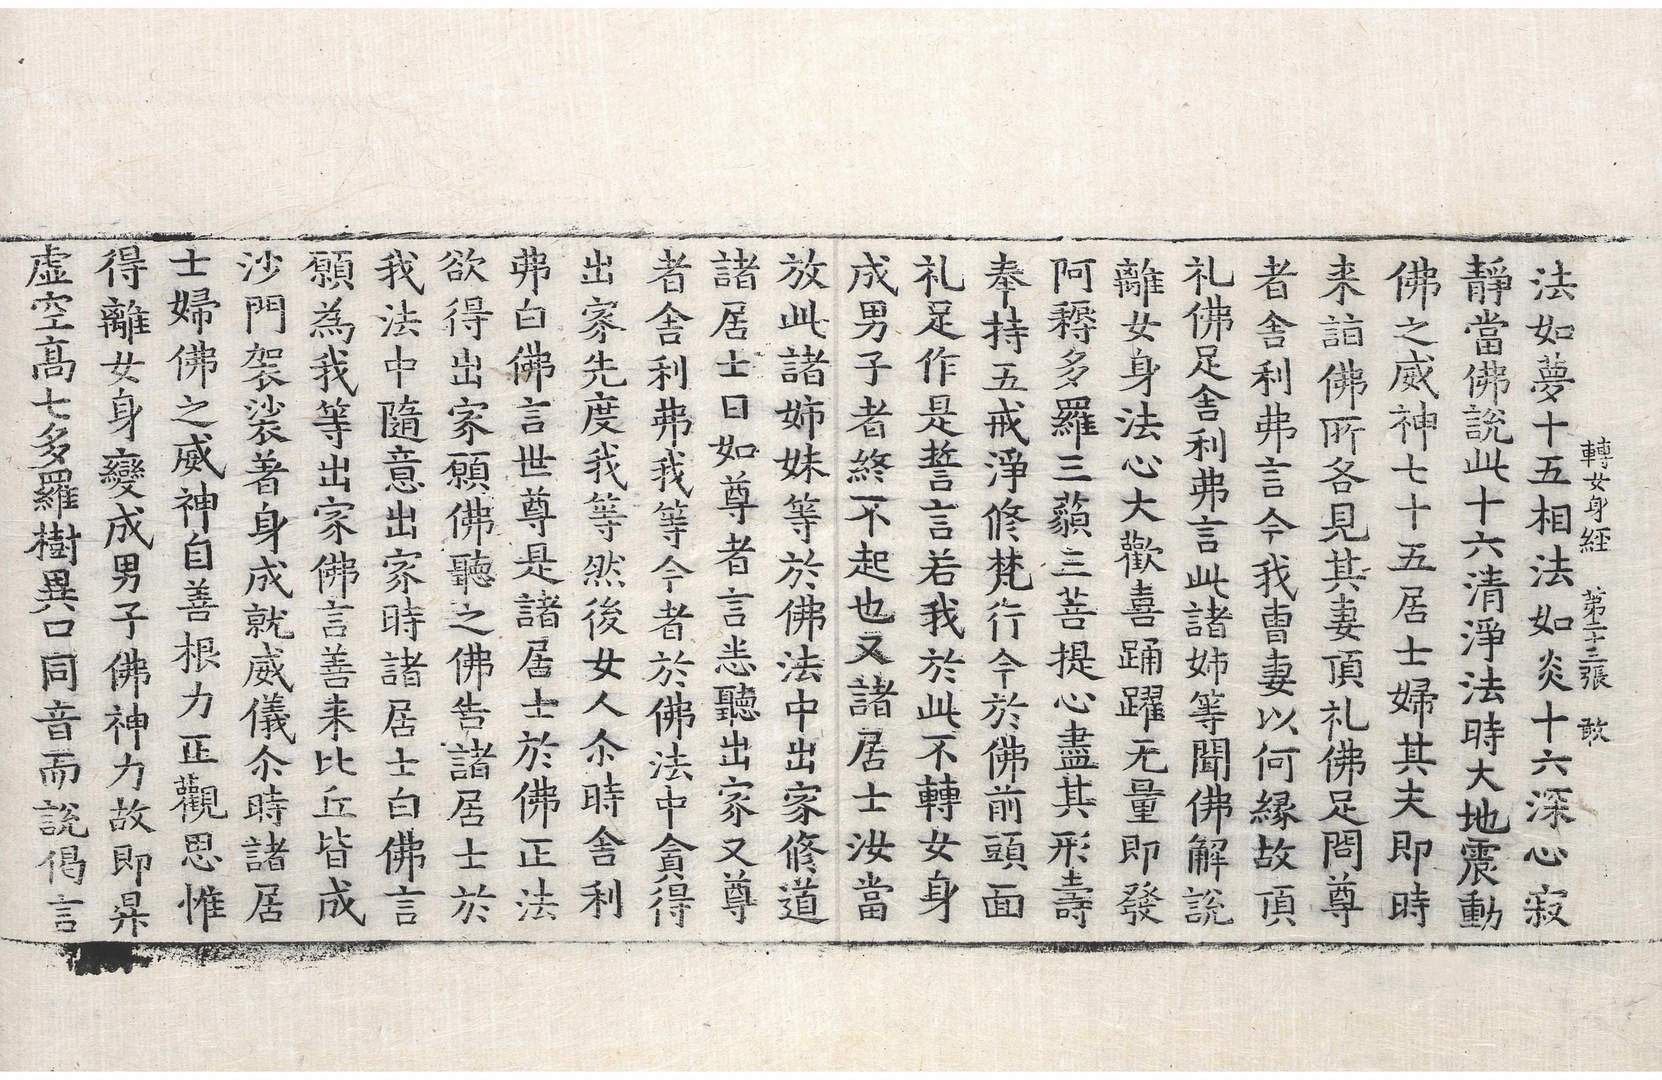 轉女身經　第二十三張　敢
法如夢十五相法如炎十六深心寂
靜當佛說此十六清淨法時大地震動
佛之威神七十五居士婦其夫即時
来詣佛所各見其妻頂礼佛足問尊
者舍利弗言今我曺妻以何縁故頂
礼佛足舍利弗言此諸姉等聞佛解說
離女身法心大歡喜踊躍无量即發
阿耨多羅三藐三菩提心盡其形壽
奉持五戒淨修梵行今於佛前頭面
礼足作是誓言若我於此不轉女身
成男子者終不起也又諸居士汝當
放此諸姉妹等於佛法中出家修道
諸居士曰如尊者言恣聽出家又尊
者舍利弗我等今者於佛法中貪得
出家先度我等然後女人尒時舍利
弗白佛言世尊是諸居士於佛正法
欲得出家願佛聽之佛告諸居士於
我法中隨意出家時諸居士白佛言
願為我等出家佛言善来比丘皆成
沙門袈裟著身成就威儀尒時諸居
士婦佛之威神自善根力正觀思惟
得離女身變成男子佛神力故即昇
虛空高七多羅樹異口同音而說偈言